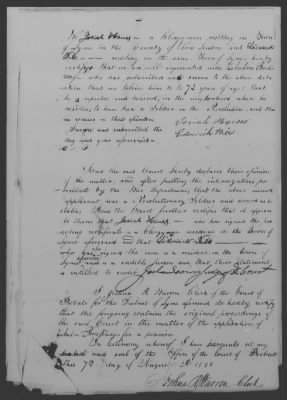 We Josiah Hawes — a Clergyman residing in Town
of Lyme in the County of New London and Sedowick
— residing in the same Town of Lyme hereby
certify that we are well acquainted with
who has subscribed and sworn to the above decla-
ration that we believe him to be 72 years of age: that
he is reputed and believed, in the neighborhood where he
resides, to have been a Soldier in the Revolution, and that
we concur in that opinion
Sworn and subscribed the
day and year aforesaid
Josiah Hawes
And the said Court hereby declares their opinion
of the matter, and after putting the interrogatories pre-
scribed by the War Department, that the above named
applicant was a Revolutionary Soldier and served as he
states. And the Court further certifies that it appears
to them that Josiah Hawes — who has signed the pre-
ceding certificate is a Clergyman resident in the Town of
Lyme aforesaid and that
who has signed the same is a resident in the Town of
Lyme and is a credible person and that their statement
is entitled to credit. Judge of Court
I Joshua R. Warren Clerk of the Court of
Probate for the District of Lyme aforesaid do hereby certify
that the foregoing contains the original proceedings of
the said Court in the matter of the application of
for a pension
In testimony whereof I have hereunto set my
hand and seal of the Office of the Court of Probate
this 7th day of August 1832
Joshua R Warren Clerk